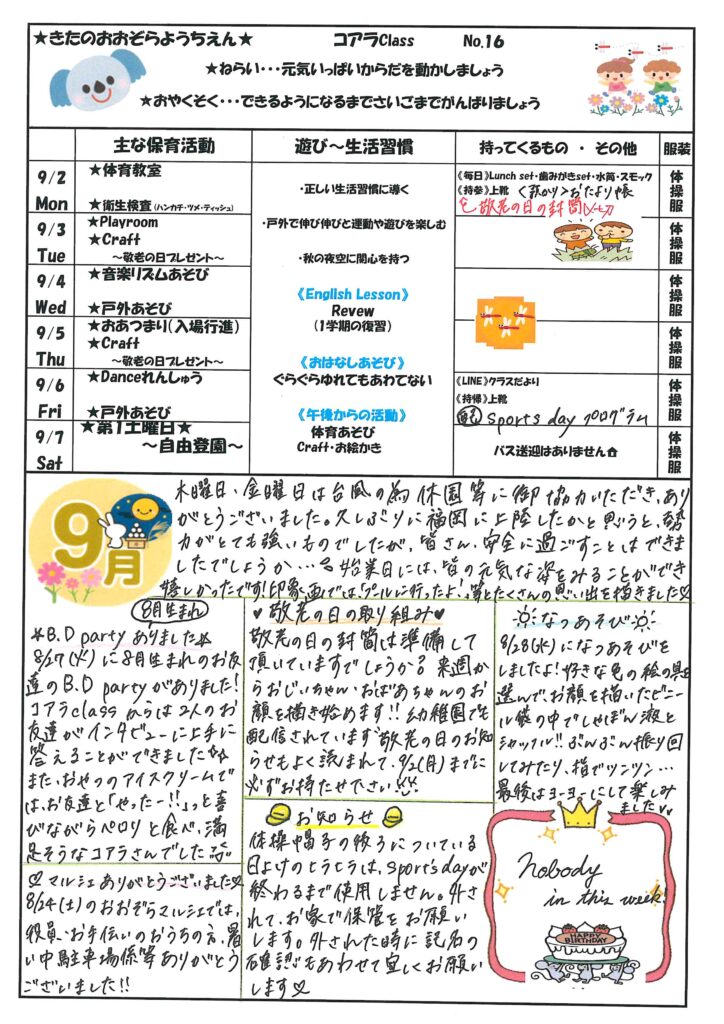 ★きたのおおぞらようちえん★ コアラClass No.16
★ねらい・・・元気いっぱいからだを動かしましょう
★おやくそく・・・できるようになるまでさいごまでがんばりましょう
主な保育活動 遊び～生活習慣 持ってくるもの ・ その他 服装
9/2 Mon
★体育教室
★衛生検査(ハンカチ・ツメ・ティッシュ)
9/3 Tue
★Playroom
★Craft
～敬老の日プレゼント～
9/4 Wed
★音楽リズムあそび
★戸外あそび
9/5 Thu
★おあつまり(入場行進)
★Craft
～敬老の日プレゼント～
9/6 Fri
★Danceれんしゅう
★戸外あそび
9/7 Sat
★第1土曜日★
～自由登園～
・正しい生活習慣に導く
・戸外で伸び伸びと運動や遊びを楽しむ
・秋の夜空に関心を持つ
《English Lesson》
Revew
(1学期の復習)
《おはなしあそび》
ぐらぐらゆれてもあわてない
《午後からの活動》
体育あそび
Craft・お絵かき
《毎日》Lunch set・歯みがきset・水筒・スモック
《持参》上靴 <預かり>おたより帳
敬老の日の封筒〆切
《LINE》クラスだより
《持帰》上靴
sports day プログラム
バス送迎はありません
体操服
体操服
体操服
体操服
体操服
体操服
9月
木曜日、金曜日は台風の為休園等に御協力いただき、あり
がとうございました。久しぶりに福岡に上陸したかと思うと、勢
力がとても強いものでしたが、皆さん、安全に過ごすことはできま
したでしょうか…。始業日には、皆の元気な姿をみることができ
嬉しかったです!印象画では、「プールに行ったよ!」等とたくさんの思い出を描きました♡
8月生まれ
★B.D party ありました★
8/27(火)に8月生まれのお友
達のB.D partyがありました!
コアラclassからは2人のお
友達がインタビューに上手に
答えることができました☆
また、おやつのアイスクリームで
は、お友達と「やったー!!」っと喜
びながらペロリと食べ、満
足そうなコアラさんでした
♡マルシェありがとうございました♡
8/24(土)のおおぞらマルシェでは、
役員、お手伝いのおうちの方、暑
い中駐車場係等ありがとう
ございました!!
♥敬老の日の取り組み♥
敬老の日の封筒は準備して
頂いていますでしょうか? 来週か
らおじいちゃん・おばあちゃんのお
顔を描き始めます!! 幼稚園でも
配信されています敬老の日のお知
らせもよく読まれて、9/2(月)までに
必ずお持たせ下さい!!
お知らせ
体操帽子の後ろについている
日よけのヒラヒラは、sport's dayが
終わるまで使用しません。外さ
れて、お家で保管をお願い
します。外された時に記名の
確認もあわせて宜しくお願い
します♡
なつあそび
8/28(水)になつあそびを
しましたよ!好きな色の絵の具を
選んで、お顔を描いたビニー
ル袋の中でしゃぼん液と
シャッフル!! ぶんぶん振り回
してみたり、指でツンツン…
最後はヨーヨーにして楽しみ
ました
Nobody
in this week!
HAPPY BIRTHDAY